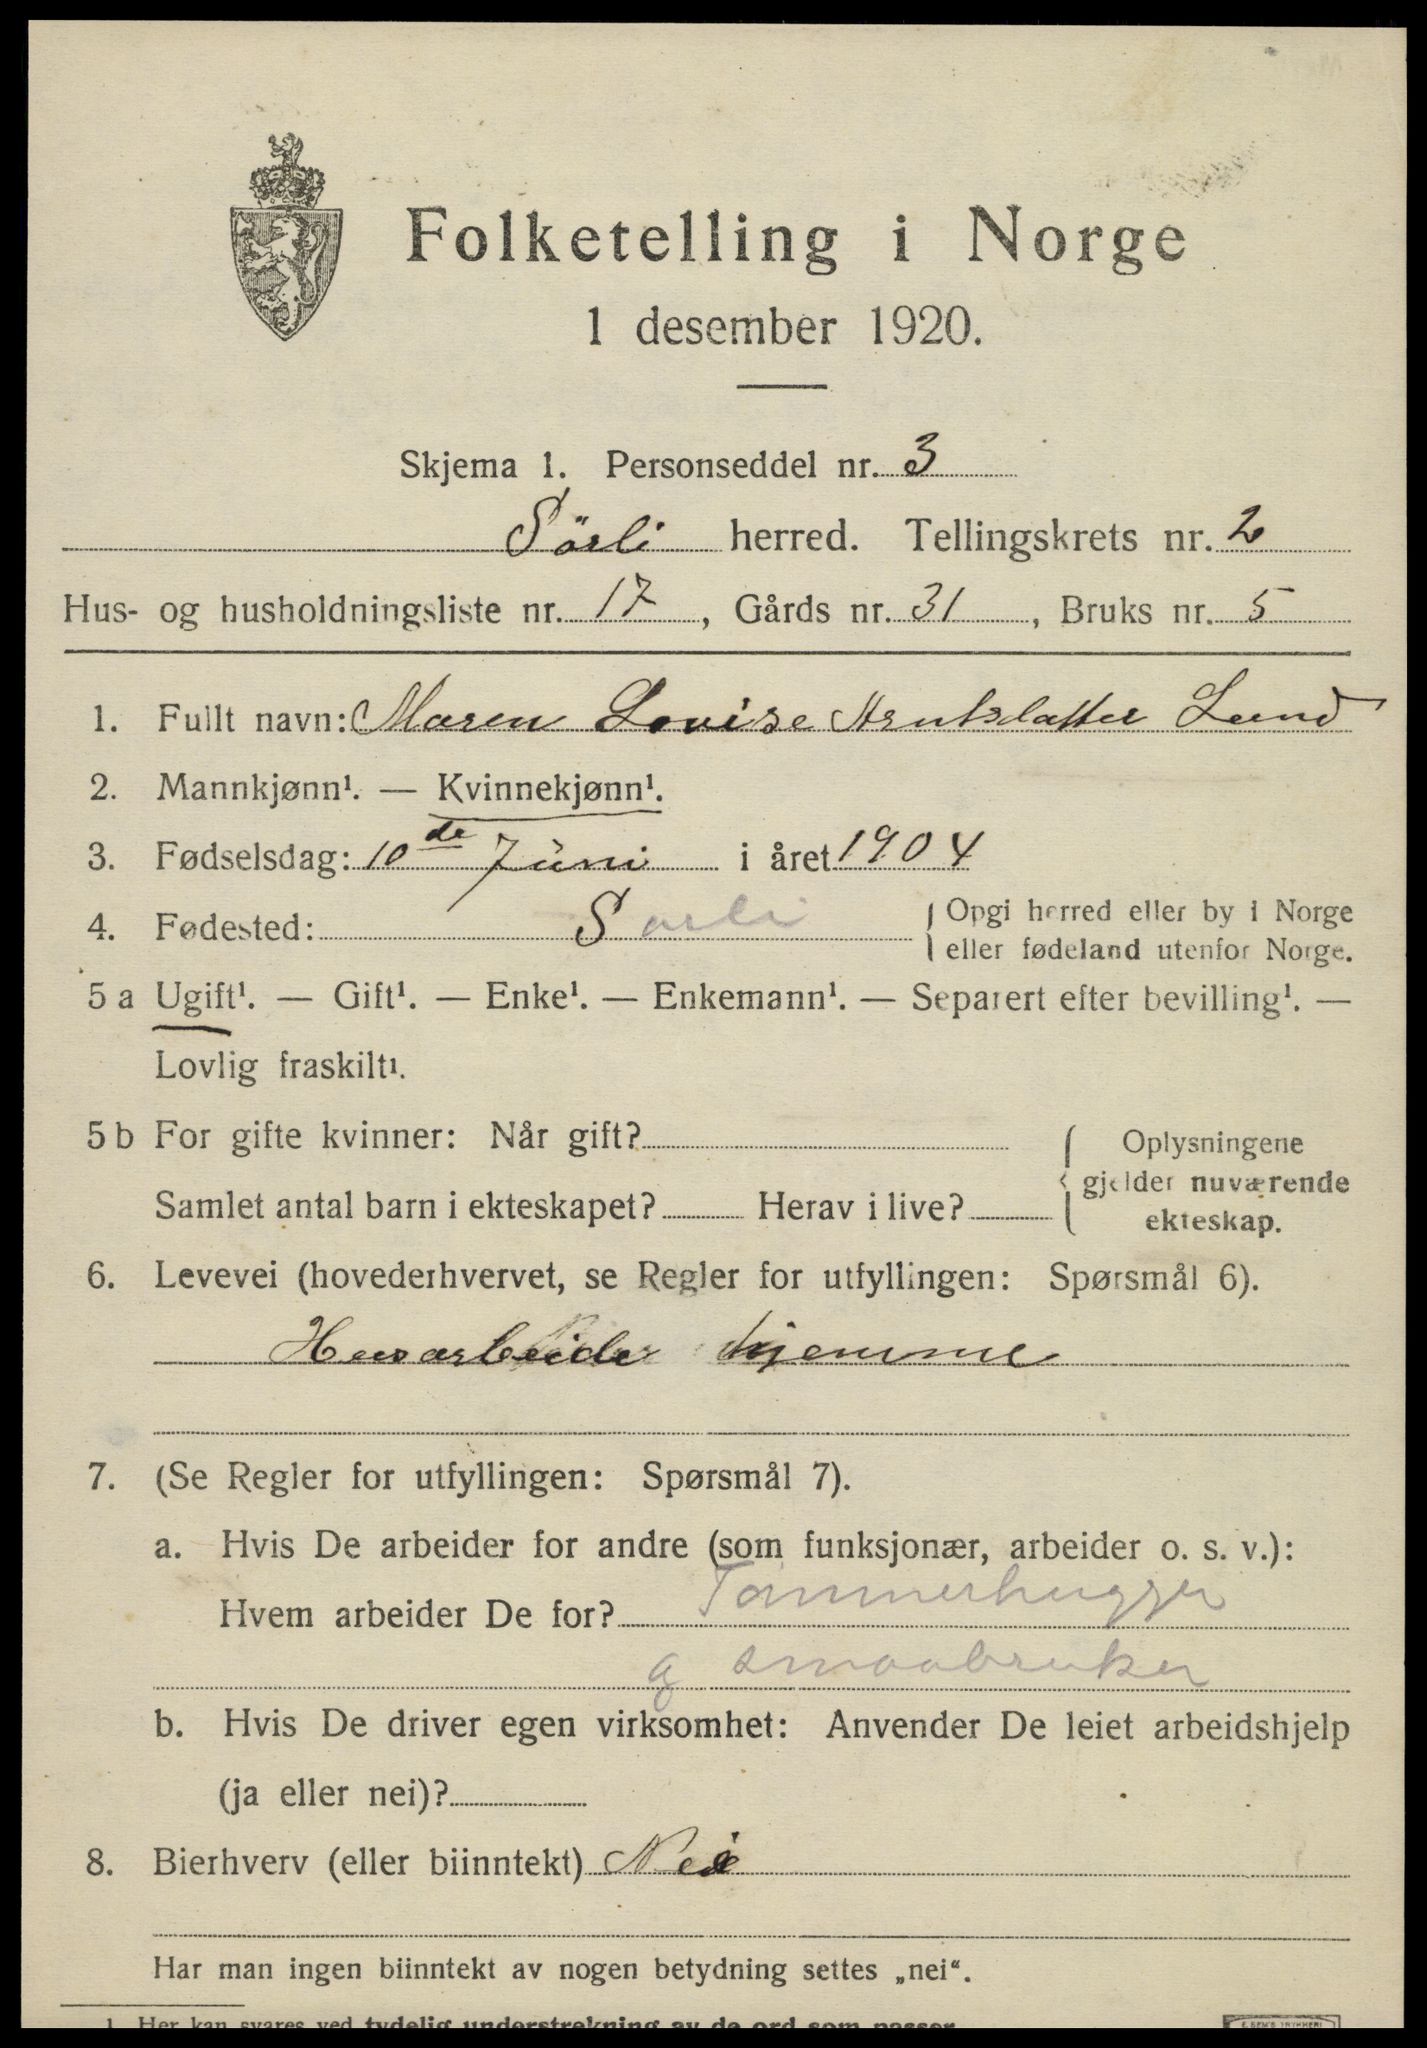 Folketelling i Norge
1 desember 1920.
Skjema 1. Personseddel nr. 3
Sörli herred. Tellingskrets nr. 2
Hus- og husholdningsliste nr. 17, Gårds nr. 31, Bruks nr. 5
1. Fullt navn: Maren Lovise Arntsdatter Lund
2. Mannkjønn¹. — Kvinnekjønn¹.
3. Fødselsdag: 10de Juni i året 1904
4. Fødested: Sørli { Opgi herred eller by i Norge
eller fødeland utenfor Norge.
5 a Ugift¹. — Gift¹. — Enke¹. — Enkemann¹. — Separert efter bevilling¹. —
Lovlig fraskilt¹.
5 b For gifte kvinner: Når gift? { Oplysningene
gjelder nuværende
Samlet antal barn i ekteskapet? Herav i live? ekteskap.
6. Levevei (hovederhvervet, se Regler for utfyllingen: Spørsmål 6).
Husarbeide hjemme
7. (Se Regler for utfyllingen: Spørsmål 7).
a. Hvis De arbeider for andre (som funksjonær, arbeider o. s. v.):
Hvem arbeider De for? Tømmerhugger
og smaabruker
b. Hvis De driver egen virksomhet: Anvender De leiet arbeidshjelp
(ja eller nei)?
8. Bierhverv (eller biinntekt) Nei
Har man ingen biinntekt av nogen betydning settes „nei“.
1 Her kan svares ved tydelig understrekning av de ord som passer.